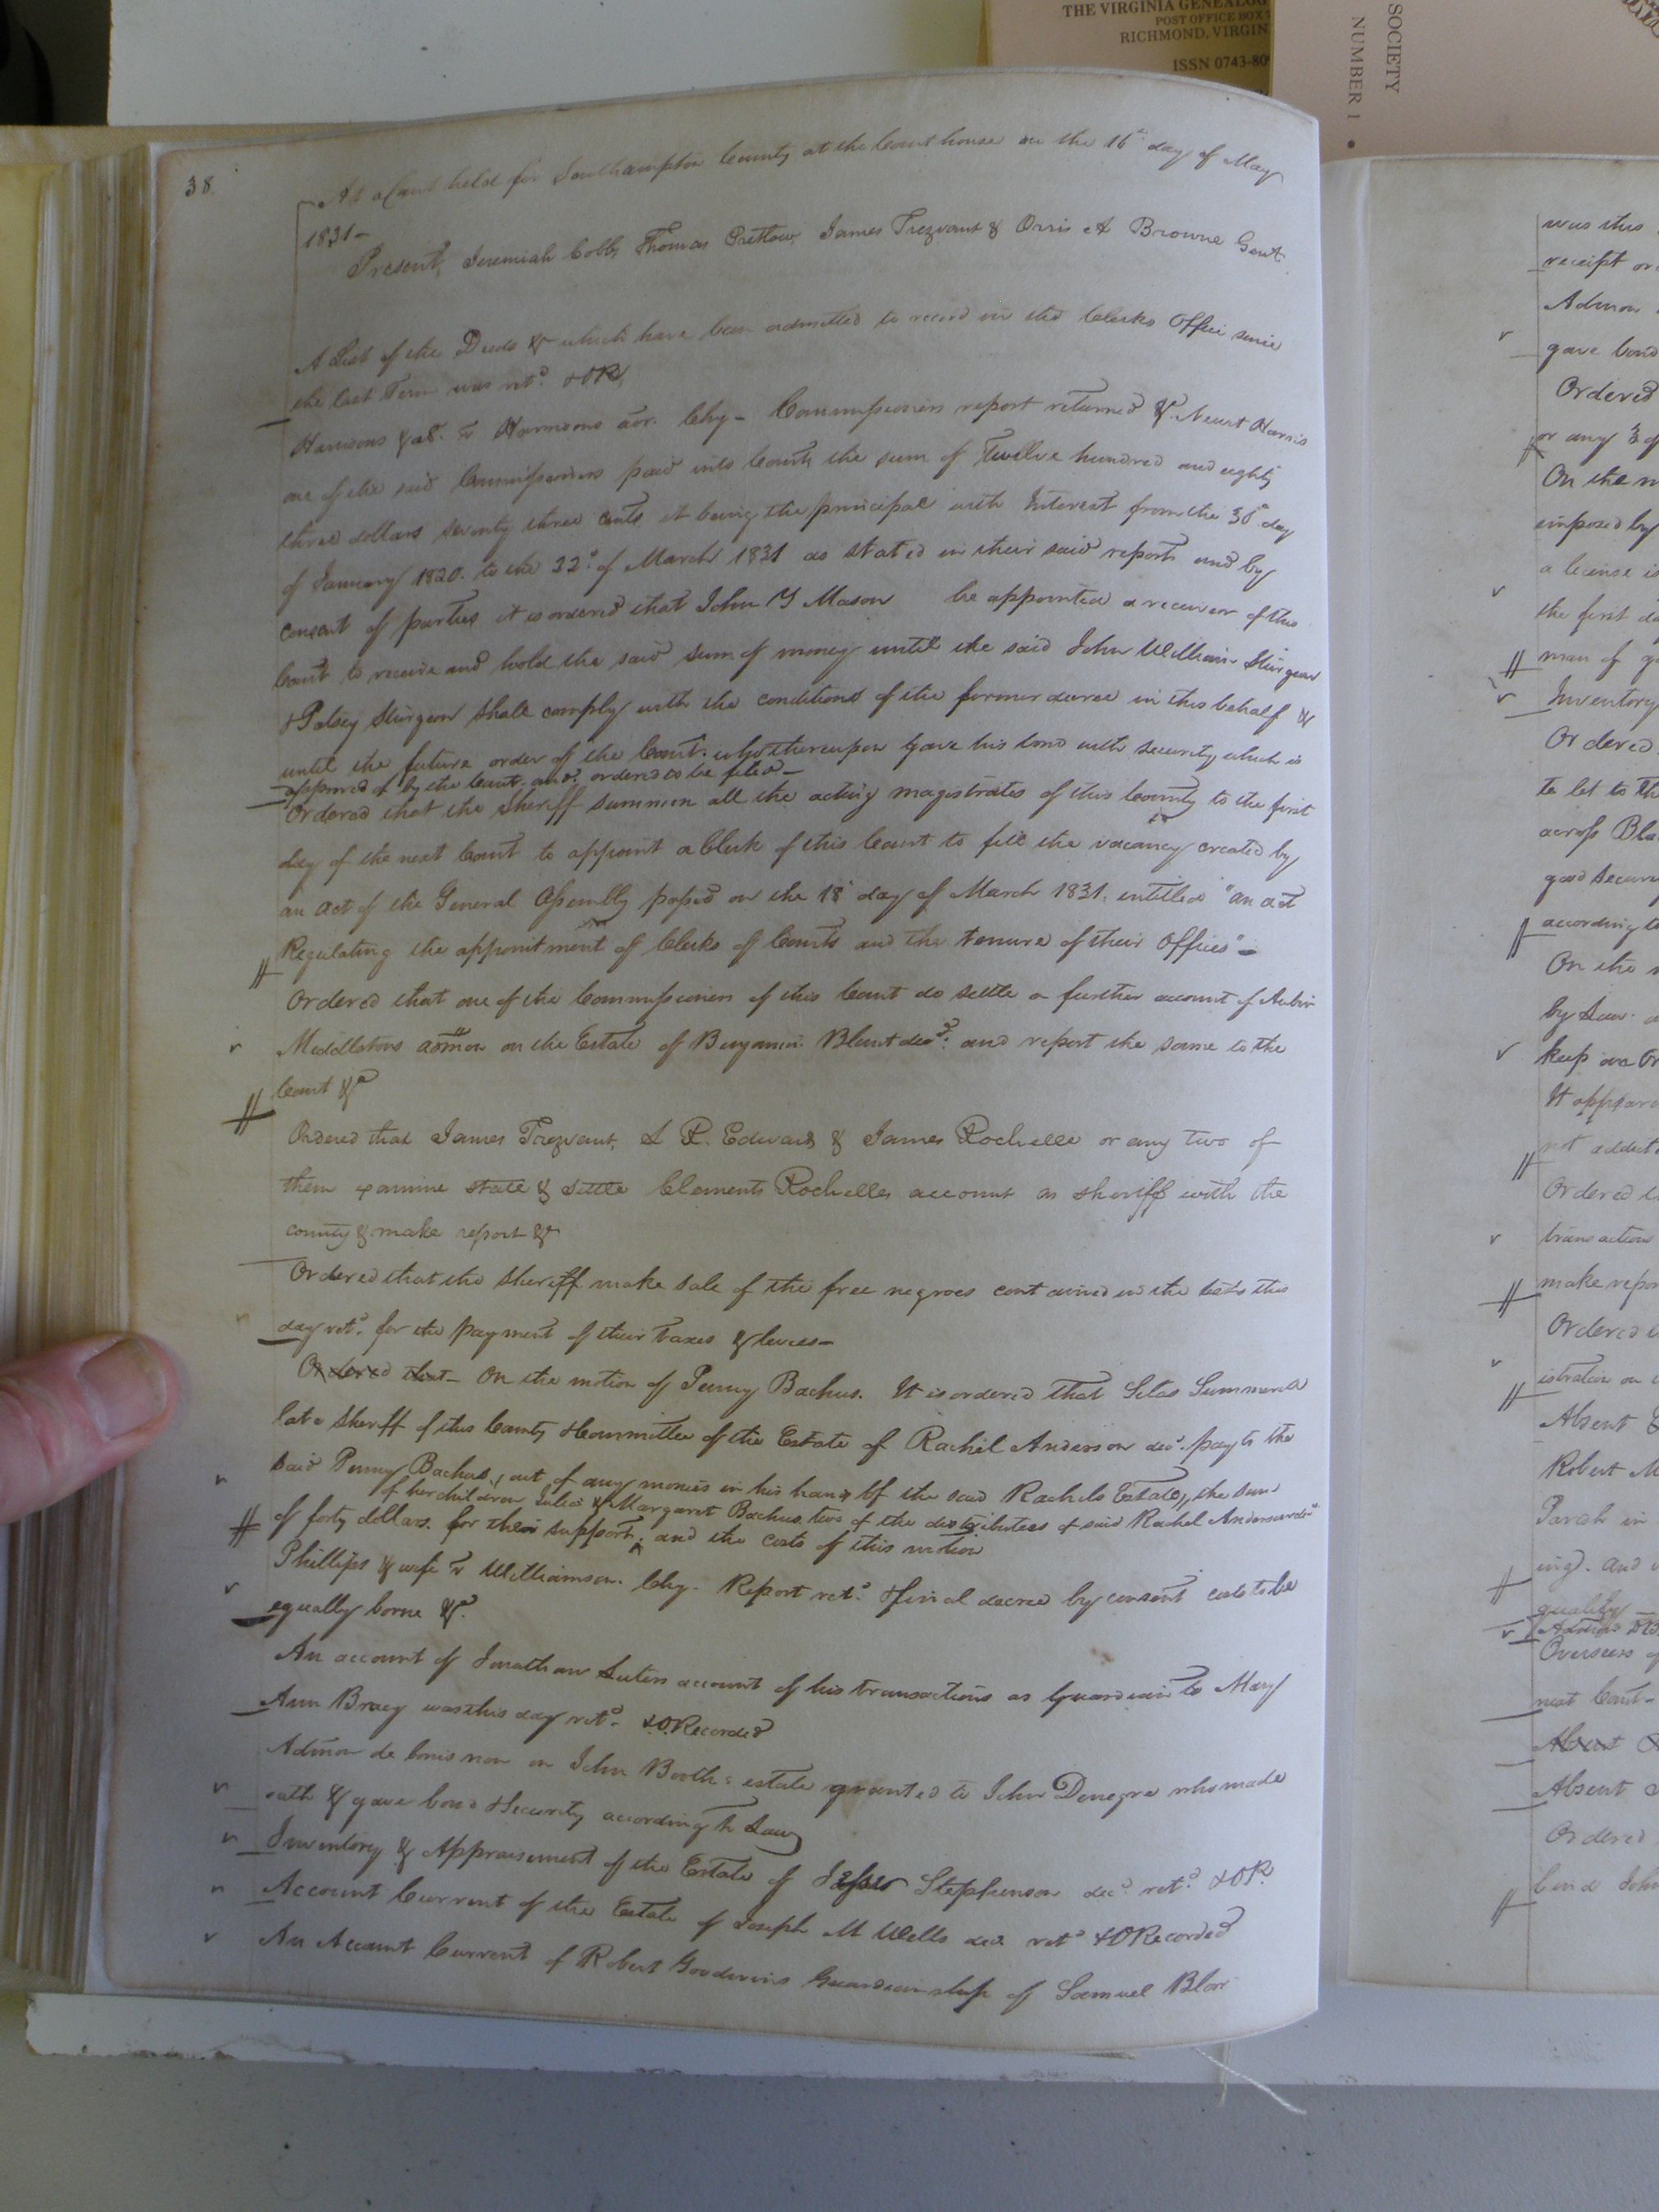 THE VIRGINIA GENEALOG
POST OFFICE BOX
RICHMOND, VIRGIN
ISSN 0743-80
SOCIETY
NUMBER 1 •
38
At a Court held for Southampton County at the Court house on the 16th day of May
1831-
Present, Jeremiah Cobb, Thomas Pretlow, James Trezvant & Orris A Browne Gent.
A List of the Deeds & which have been admitted to record in the Clerks Office since
the last Term was retd. & OR,
Harrisons & als. vs Harrisons &c. Chy - Commissioners report returned &c. Newit Harris
one of the said Commissioners paid into Court, the sum of Twelve hundred and eighty
three dollars seventy three cents it being the principal with Interest from the 30th day
of January 1820. to the 22d. of March 1831 as stated in their said reports and by
consent of parties it is ordered that John Y Mason be appointed a receiver of this
Court to receive and hold the said sum of money until the said John William Sturgeon
& Patsey Sturgeon shall comply with the conditions of the former decree in this behalf &
until the future order of the Court. who thereupon gave his bond with security, which is
approved of by the Court. and. ordered to be filed -
Ordered that the Sheriff summon all the acting magistrates of this County to the first
day of the next Court to appoint a Clerk of this Court to fill the vacancy created by
an act of the General Assembly passed on the 18th day of March 1831. intitled "an act
Regulating the appointment of Clerks of Courts and the tenure of their offices" -
Ordered that one of the Commissioners of this Court do settle a further account of
Middletons admon on the Estate of Benjamin Blunt decd: and report the same to the
Court &c
Ordered that James Trezvant, R. Edwards & James Rochelle or any two of
them examine state & settle Clements Rochelles account as sheriff with the
county & make report &c
Ordered that the sheriff make sale of the free negroes contained in the list this
day retd. for the payment of their taxes & levies -
Ordered that - On the motion of Penny Bachus. It is ordered that Silas Summerell
late Sheriff of this County & Committee of the Estate of Rachel Anderson decd. pay to the
said Penny Bachus, out of any monies in his hands of the said Rachels Estate, the sum
of her children Julia & Margaret Bachus two of the distributees of said Rachel Anderson decd.
of forty dollars. for their support, and the costs of this motion
Phillips & wife vs Williamson. Chy - Report retd. & final decree by consent costs to be
equally borne &c.
An account of Jonathan Luters account of his transactions as Guardian to Mary
Ann Bracy was this day retd. & O. Recorded
Admon de bonis non on John Booths estate granted to John Denegre who made
oath & gave bond & Security according to Law
Inventory & Appraisement of the Estate of Jesse Stephenson decd. retd. & OR.
Account Current of the Estate of Joseph M Wells decd retd & O Recorded
An Account Current of Robert Goodwins Guardianship of Samuel Blow
was this
receipt or
Admon
gave bond
Ordered
or any 3 of
On the m
imposed by
a license is
the first da
man of g
Inventory
Ordered
to let to th
across Bla
good secur
according to
On the
by Law.
keep
It appear
not addict
Ordered
transactions
make repor
Ordered
istration on
Absent
Robert M
Parish in
ing. and
quality
Overseers of
next Court-
Absent
Absent
Ordered
bind John